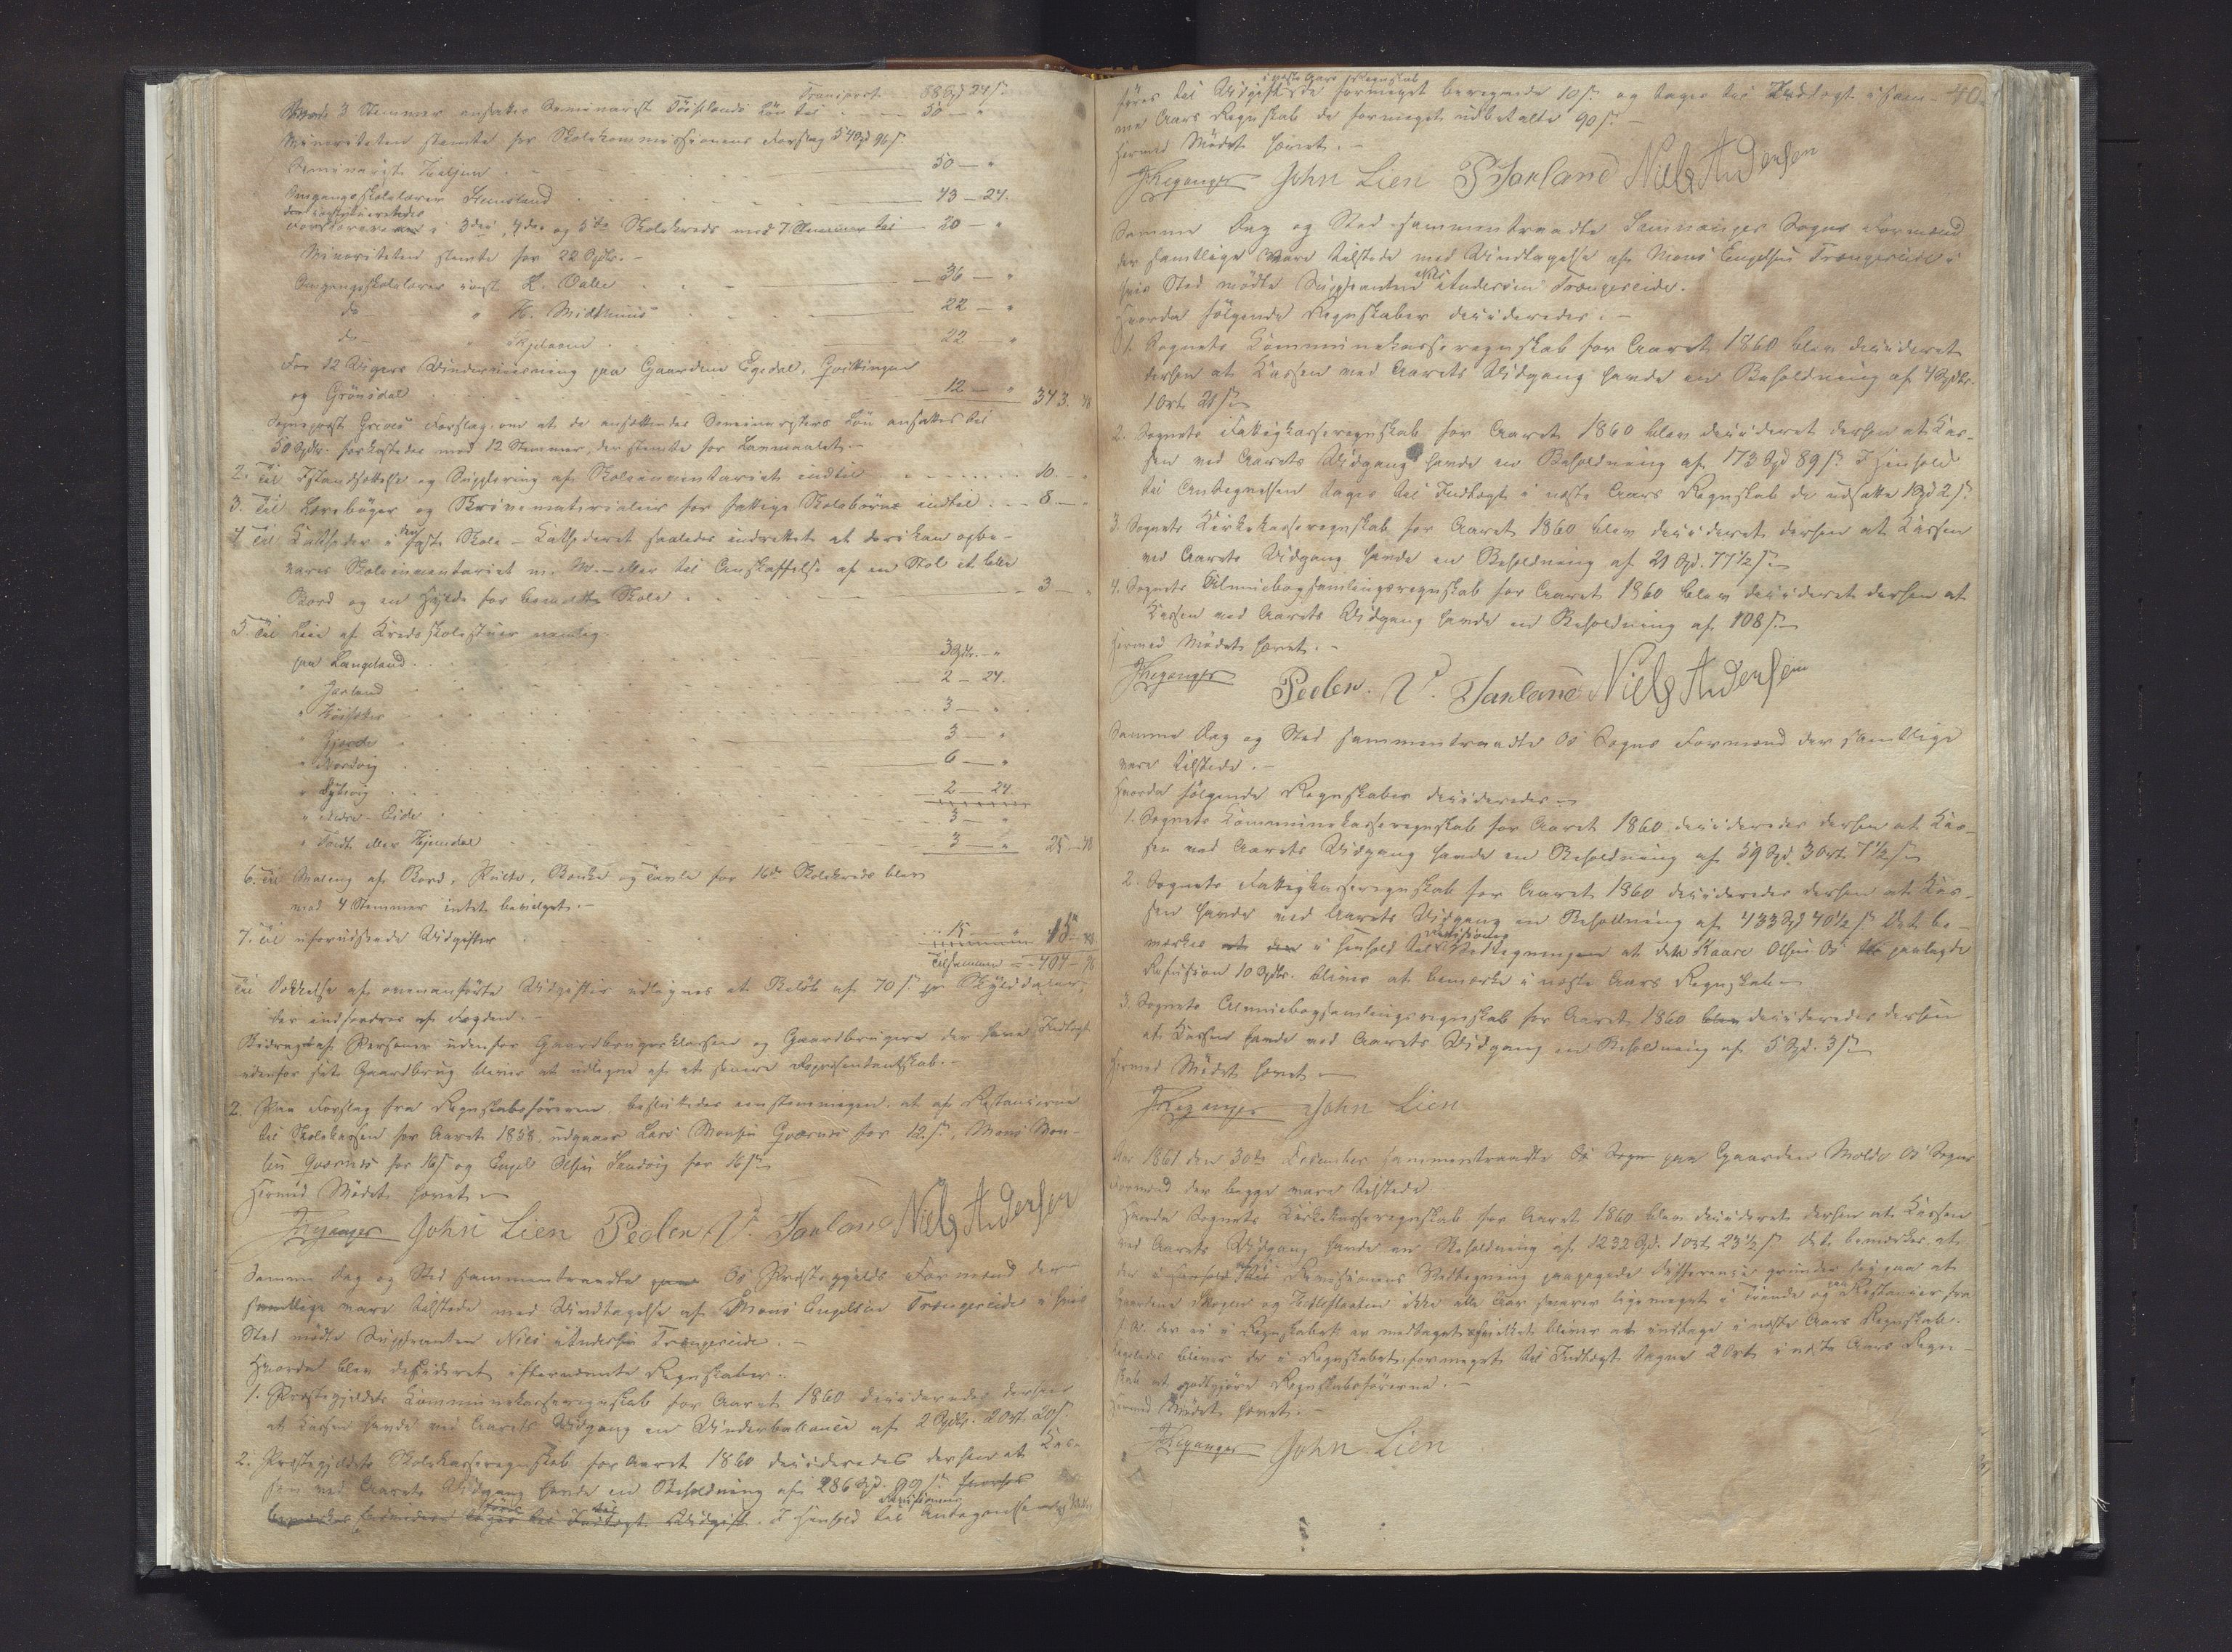 Transport 88 Spd 24 ſ
Mod 3 Stemmer ansattes Seminarist Lön til 50 — "
Minoriteten stemte for Skolekommissionens Forslag 54 Spd 96 ſ.
Seminarist 50 — "
Omgangsskolelærer 43 — 24.
i 3die, 4de og 5te Skolekreds med 7 Stemmer til 20 — "
Minoriteten stemte for 22 Spdlr. —
Omgangsskolelærer 36 — "
do " H. Midthuus 22 — "
do " 22 "
For 12 Ugers Underviisning paa Gaardene Egedal,
og Grönsdal 12 — " 343.
Sognepræst Forslag om at de ansættendes Seminaristers Lön ansættes til
50 Spdlr. forkastedes med 12 Stemmer, der stemte for
2. Til Istandsættelse og Supplering af Skoleinventariet indtil 10. —
3. Til Lærebøger og Skrivematerialier for fattige Skolebörn indtil 8 —
4. Til Katheder i faste Skole – Kathederet saaledes indrettet at deri kan opbe-
vares Skoleinventariet m. M. – eller til Anskaffelse af en Stol et lidet
Bord og en Hylde for Skole 3 —
5. Til Leie af Kredsskolestuer nemlig.
paa Langeland 3 Spdlr. — "
" Jarland 2 — 24.
" 3 — "
" 3 — "
" Nordvig 6 — "
" Lysevig 2 — 24.
" Eide 3 — "
" Tveidt eller Hjemdal 3 — " 25 —
6. Til Maling af Bord, Pulte, Bænke og Tavle for 16de Skolekreds blev
mod 4 Stemmer intet bevilget. —
7. Til uforudseede Udgifter 15 — " 15 —
Tilsammen = 404 —
Til Dækkelse af ovenanførte Udgifter udlignes et Beløb af 70 ſ pr Skylddaler,
der indfordres af Fogden. —
Bidraget af Personer udenfor Gaardbrugerklassen og Gaardbrugere der have Indtægt
udenfor sit Gaardbrug bliver at udligne af et senere Repræsentantskab. —
2. Paa Forslag fra Regnskabsføreren besluttedes eenstemmigen at af Restancerne
til Skolekassen for Aaret 1858 udgaaer Lars Monsen for 12 ſ, Mons Mon-
sen for 16 ſ og Engel Olsen Sandvig for 16 ſ
Hermed Mödet hævet —
John Lien Peder P. Jarland Niels Andersen
Samme Dag og Sted sammentraadte Os Præstegjelds Formænd der
samtlige vare tilstede med Undtagelse af Mons Engelsen Trengereide i hvis
Sted mødte Supplianten Niels Andersen Trengereide. —
Hvorda blev decideret efternævnte Regnskaber.
1. Præstegjeldets Kommunekasseregnskab for Aaret 1860 decideredes derhen
at Kassen havde ved Aarets Udgang en Underballance af 2 Spdlr. 2 Ort 20 ſ
2. Præstegjeldets Skolekasseregnskab for Aaret 1860 decideredes derhen at Kas-
sen ved Aarets Udgang havde en Beholdning af 286 Spd. 99 ſ
til Indtægt Udgift. I Henhold til Revisionens Antegnelser
40.
i næste Aars Regnskab
føres til Udgift de formeget beregnede 10 ſ og tages til Indtægt i sam-
me Aars Regnskab de formeget udbetalte 90 ſ —
Hermed Mödet hævet. —
John Lien P Jarland Niels Andersen
Samme Dag og Sted sammentraadte Sogns Formænd
der samtlige vare tilstede med Undtagelse af Mons Engelsen Trengereide i
hvis Sted mødte Supplianten Niels Andersen Trengereide.
Hvorda følgende Regnskaber decideredes. —
1. Sognets Kommunekasseregnskab for Aaret 1860 blev decideret
derhen at Kassen ved Aarets Udgang havde en Beholdning af 4 Spdlr.
1 Ort 21 ſ
2. Sognets Fattigkasseregnskab for Aaret 1860 blev decideret derhen at Kas-
sen ved Aarets Udgang havde en Beholdning af 173 Spd 89 ſ. I Henhold
til Antegnelsen tages til Indtægt i næste Aars Regnskab de udsatte 1 Spd 2 ſ.
3. Sognets Kirkekasseregnskab for Aaret 1860 blev decideret derhen at Kassen
ved Aarets Udgang havde en Beholdning af 21 Spd. 77½ ſ
4. Sognets Almuebogsamlingsregnskab for Aaret 1860 blev decideret derhen at
Kassen ved Aarets Udgang havde en Beholdning af 108 ſ —
Hermed Mödet hævet. —
Peder P. Jarland Niels Andersen
Samme Dag og Sted sammentraadte Os Sogns Formænd der samtlige
vare tilstede. —
Hvorda følgende Regnskaber decideredes —
1. Sognets Kommunekasseregnskab for Aaret 1860 decideredes derhen at Kas-
sen ved Aarets Udgang havde en Beholdning af 59 Spd. 3 Ort 7½ ſ
2. Sognets Fattigkasseregnskab for Aaret 1860 decideredes derhen at Kas-
sen havde ved Aarets Udgang en Beholdning af 433 Spd 40½ ſ. Det be-
mærkes i Henhold til Revisionens at den Kaare Olsen Os paalagte
Refusion 10 Spdlr. bliver at bemærke i næste Aars Regnskab —
3. Sognets Almuebogsamlingsregnskab for Aaret 1860 blev decideredes derhen
at Kassen havde ved Aarets Udgang en Beholdning af 5 Spd. 3 ſ
Hermed Mödet hævet —
John Lien
Aar 1861 den 30te December sammentraadte Os Sogn paa Gaarden Molde Os Sogns
Formænd der begge vare tilstede.
Hvorda Sognets Kirkekasseregnskab for Aaret 1860 blev decideret derhen at Kassen
ved Aarets Udgang havde en Beholdning af 1232 Spd. 1 Ort 23½ ſ. Det bemærkes at
den i Henhold Revisionens paapegede Differense grunder sig paa at
Gaardene og ikke alle Aar svarer ligemeget i Tiende og Restancer fra
der ei i Regnskabet er medtaget hvilket bliver at indtage i næste Aars Regnskab.
Ligeledes bliver de i Regnskabet formeget til Indtægt tagne 2 Ort i næste Aars Regn-
skab at godtgjöre Regnskabsföreren. —
Hermed Mödet hævet. —
John Lien